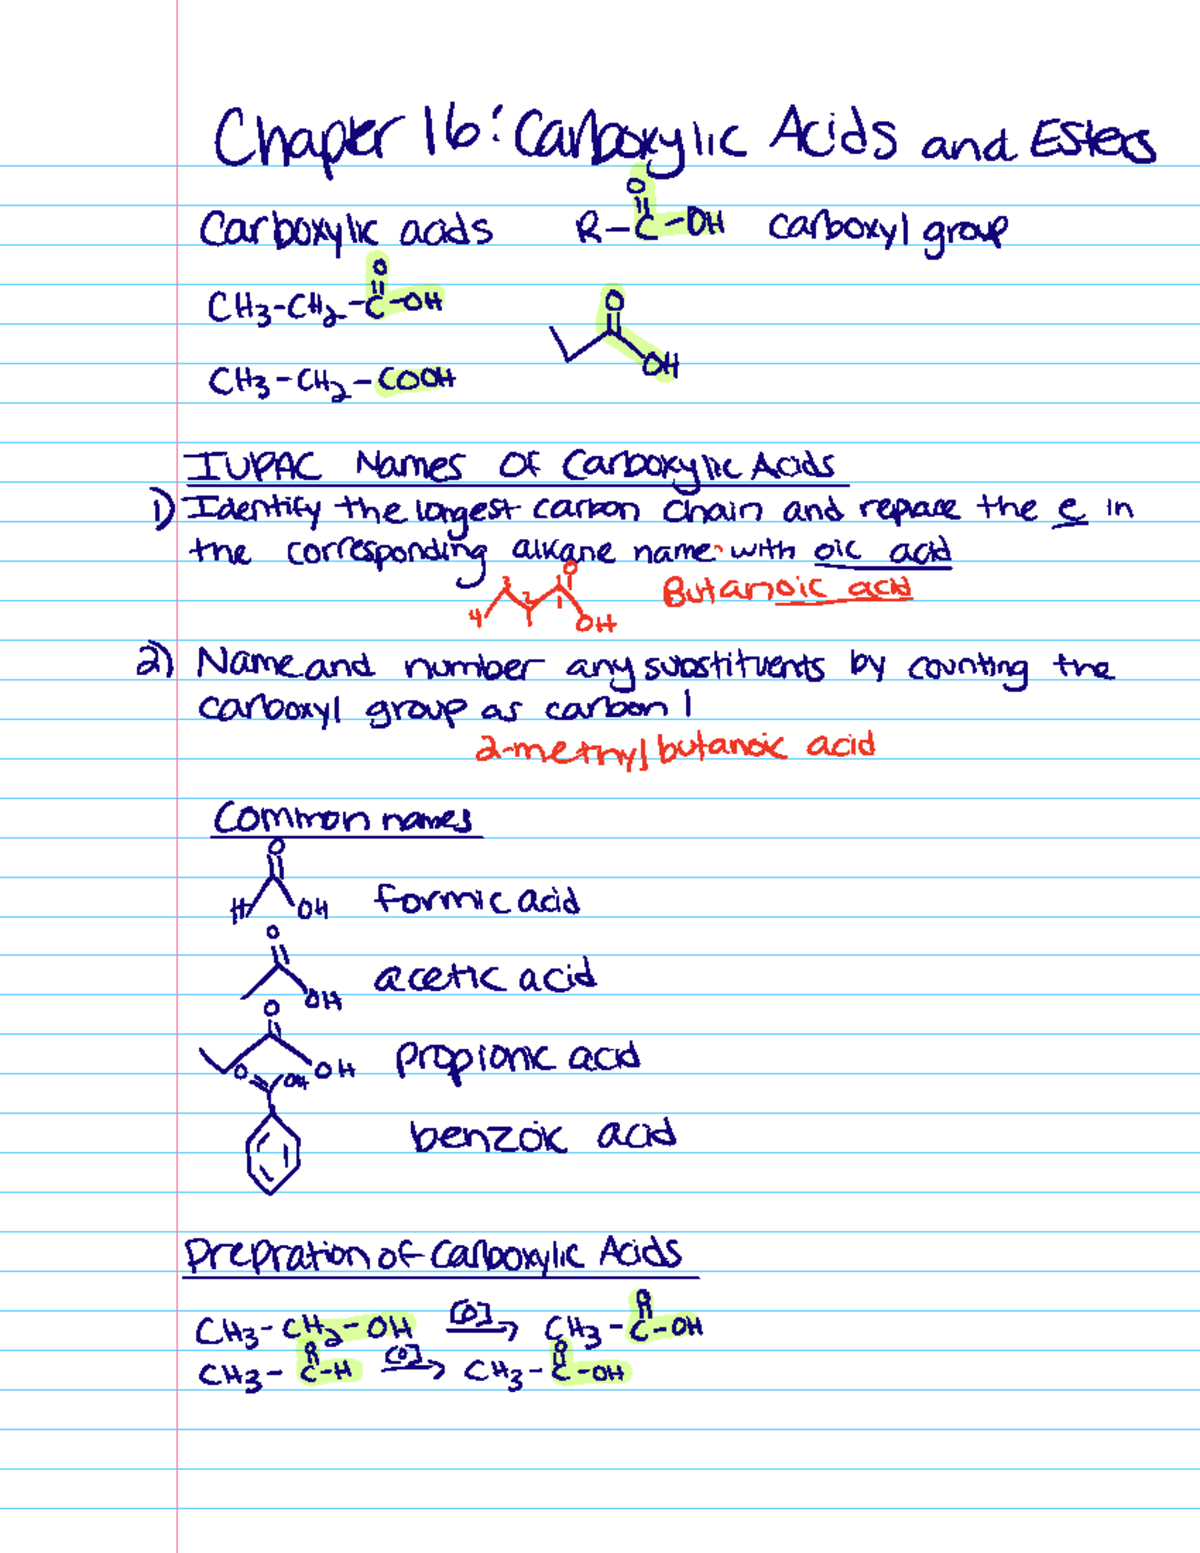 Chaper 16: Carboxylic Acids and Esters
Carboxylic acids R-C-OH carboxyl group
O
O
CH3-CH2-C-OH
O
OH
CH3-CH2-COOH
IUPAC Names Of Carboxylic Acids
1) Identify the longest carbon chain and replace the e in
the corresponding alkane name with oic acid
4 3 2 1 O OH Butanoic acid
2) Name and number any substituents by counting the
carboxyl group as carbon 1
2-methyl butanoic acid
Common names
O
H OH formic acid
O
OH acetic acid
O
OH propionic acid
O OH
benzoic acid
Prepration of Carboxylic Acids
O
CH3-CH2-OH [O] → CH3-C-OH
O O
CH3-C-H [O] → CH3-C-OH